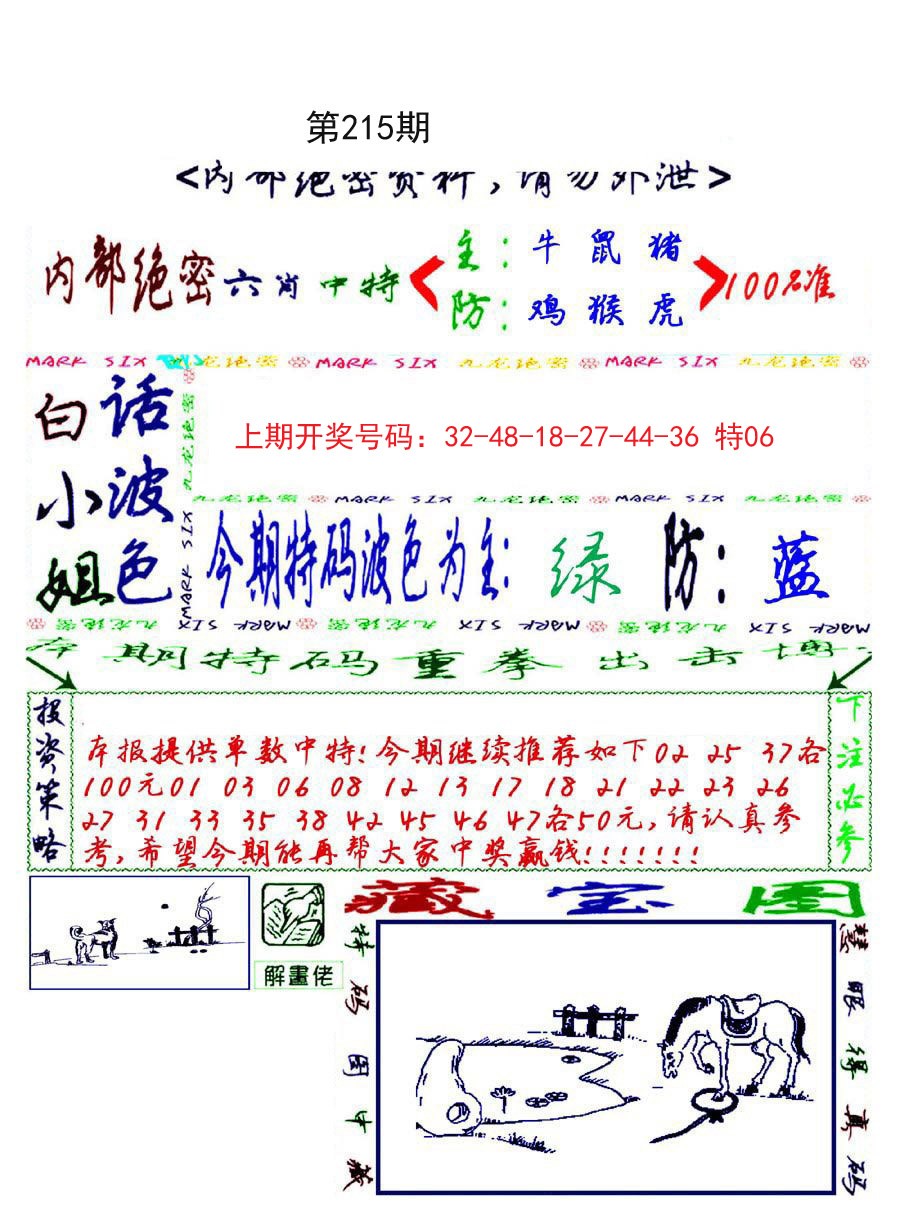 第215期
<内部绝密资料，请勿外泄>
内部绝密六肖中特
主：牛 鼠 猪
防：鸡 猴 虎
100%准
MARK SIX 九龙绝密 MARK SIX 九龙绝密 MARK SIX 九龙绝密
白话
小波
姐色
九龙绝密
MARK SIX
上期开奖号码：32-48-18-27-44-36 特06
九龙绝密 MARK SIX 九龙绝密 MARK SIX 九龙绝密
今期特码波色为主：绿 防：蓝
MARK SIX 九龙绝密 MARK SIX 九龙绝密 MARK SIX 九龙绝密
本期特码重拳出击博
投资策略
本报提供单数中特!今期继续推荐如下02 25 37各
100元01 03 06 08 12 13 17 18 21 22 23 26
27 31 33 35 38 42 45 46 47各50元,请认真参
考,希望今期能再帮大家中奖赢钱!!!!!!!
下注必参
解畫佬
藏宝图
特码图中藏
慧眼得真码